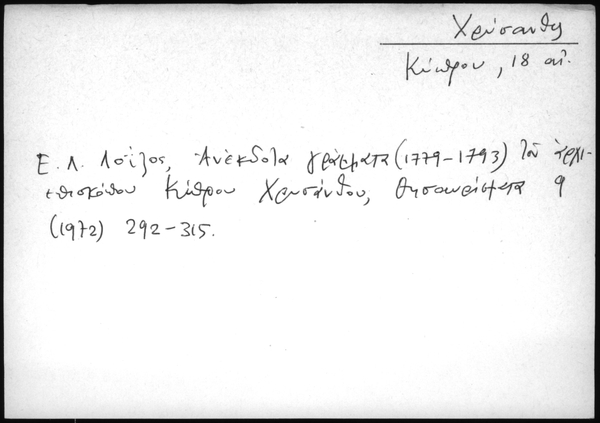 Χρύσανθος
Κύπρου, 18 αἰ.
Ε. Λ. Λοΐζος, Ἀνέκδοτα γράμματα (1779-1793) τοῦ ἀρχι-
επισκόπου Κύπρου Χρυσάνθου, Θησαυρίσματα 9
(1972) 292-315.